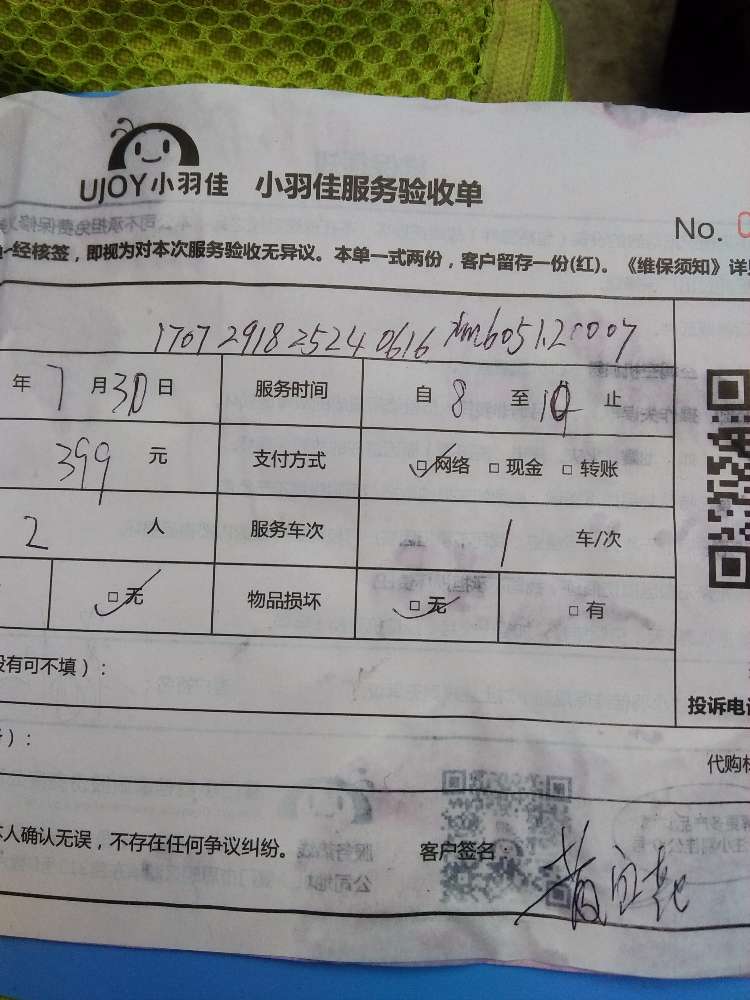 UJOY小羽佳 小羽佳服务验收单
No. 0
司不承担免费保修
一经核签，即视为对本次服务验收无异议。本单一式两份，客户留存一份(红)。《维保须知》详
1707 2918 2524 0616
年 7 月 30 日 服务时间 自 8 至 10 止
399 元 支付方式 网络 现金 转账
2 人 服务车次 1 车/次
无 物品损坏 无 有
没有可不填）：
投诉电话
）：
代购
本人确认无误，不存在任何争议纠纷。 客户签名